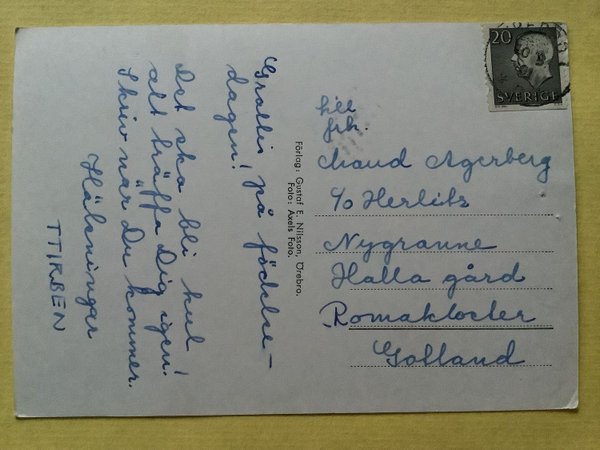 Grattis på födelse-
dagen!
Det ska bli kul
att träffa Dig igen!
Skriv när Du kommer.
Hälsningar
TTIRBEN
Förlag: Gustaf E. Nilsson, Örebro.
Foto: Axels Foto.
20
SVERIGE
till
frk.
Maud Agerberg
c/o Herlitz
Nygranne
Halla gård
Romakloster
Gotland